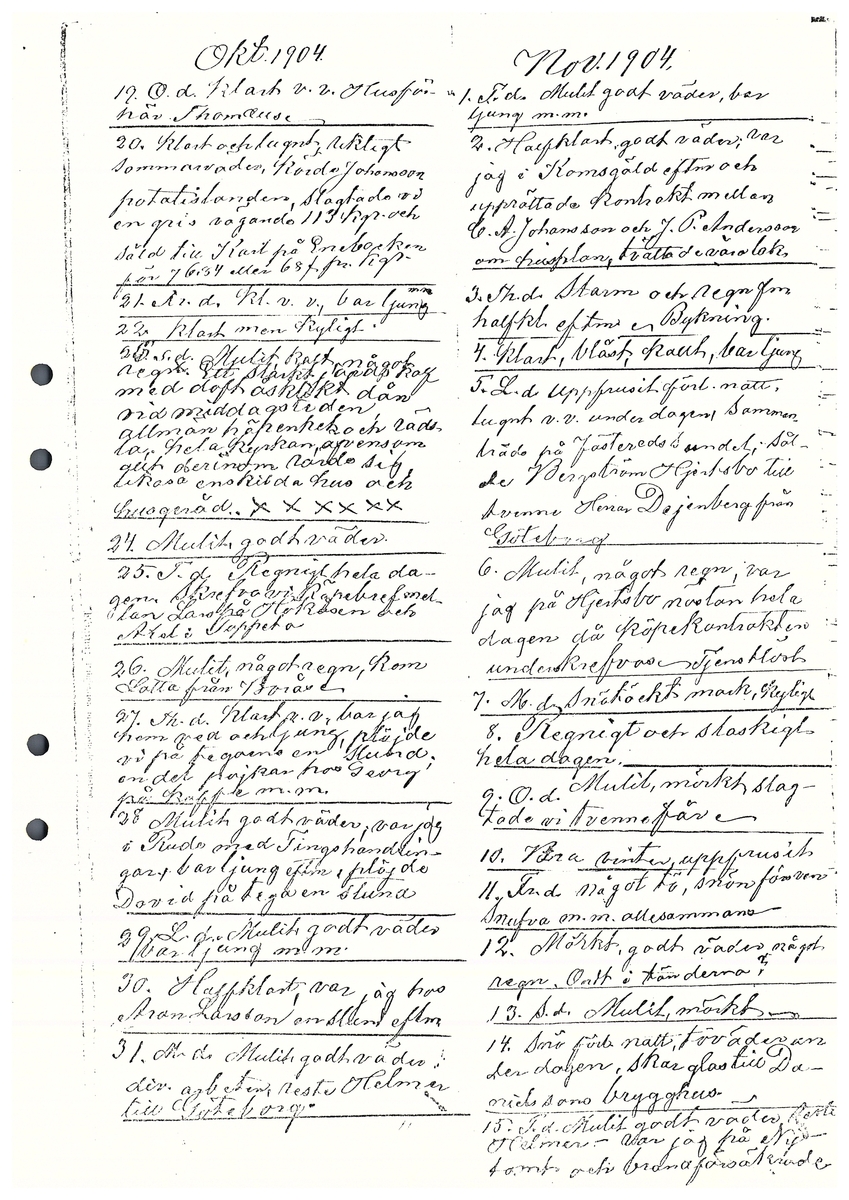 Okt. 1904.
19. O. d. Klart v. v. Husför-
hör Thomasuse
20. Klart och lugnt, riktigt
sommarväder, Körde Johansson
potatislanden, slagtade vi
en gris vägande 113 Kgr. och
såld till Karl på Enebacken
för 76.34 eller 68 f. pr. Kgr.
21. Fr. d. Kl. v. v., bar ljung mm
22. Klart men Kyligt.
23. S. d. Mulit, kallt, något
regn. Ett starkt jordskalf
med doft åsklikt dån
vid middagstiden,
allmän häpenhet och räds-
la, hela kyrkan, även som
allt derinom rörde sig,
likaså enskilda hus och
husgeråd. x x x x x x
24. Mulit, godt väder.
25. T. d. Regnigt hela da-
gen. Skrefvo vi Köpebref mel-
lan Lars på Hökåsen och
Axel i Toppeta
26. Mulit, något regn, kom
Lotta från Borås
27. Th. d. Klart v. v., bar jag
hem ved och ljung, plöjde
vi på tegarne en stund.
en del pojkar hos Georg
på kaffe m. m.
28 Mulit godt väder, var jag
i Rude med Tingshandlin-
gar, bar ljung efm, plöjde
David på tega en stund
29. L. d. Mulit godt väder
bar ljung m. m.
30. Halfklart, var jag hos
Aron Larsson en stund eftm
31. M. d. Mulit, godt väder,
div. arbeten, reste Helmer
till Göteborg.
Nov. 1904.
1. T. d. Mulit godt väder, bar
ljung m. m.
2. Halfklart, godt väder, var
jag i Komsgäld eftm och
upprättade Kontrakt mellan
C. A. Johansson och J. P. Andersson
om husplan, tvättade våra lak
3. Th. d. Storm och regn fm
halfkl. eftm Bykning.
4. Klart, blåst, kallt, bar ljung
5. L. d uppfrusit förl. natt,
lugnt v. v. under dagen, Samman
träde på Fästereds sundet, Sål-
de Bergström Hjertsbo till
tvenne Herrar Dejenberg från
Göteborg
6. Mulit, något regn, var
jag på Hjertsbo nästan hela
dagen då Köpekontrakten
underskrefvos Tjenstlöst
7. M. d. Snötäckt mark, Kyligt
8. Regnigt och slaskigt
hela dagen.
9. O. d. Mulit, mörkt, slag-
tade vi tvenne får
10. Våra vinter, uppfrusit
11. Fr. d. något tö, snön försven
Snufva m. m. allesammans
12. Mörkt, godt väder, något
regn. Ondt i tänderna
13. S. d. Mulit, mörkt
14. Snö förl. natt, töväder un
der dagen, skar glas till Da-
nielssons brygghus
15. T. d. Mulit godt väder, Reste
Helmer - var jag på Ny-
tomt och brandförsäkrade